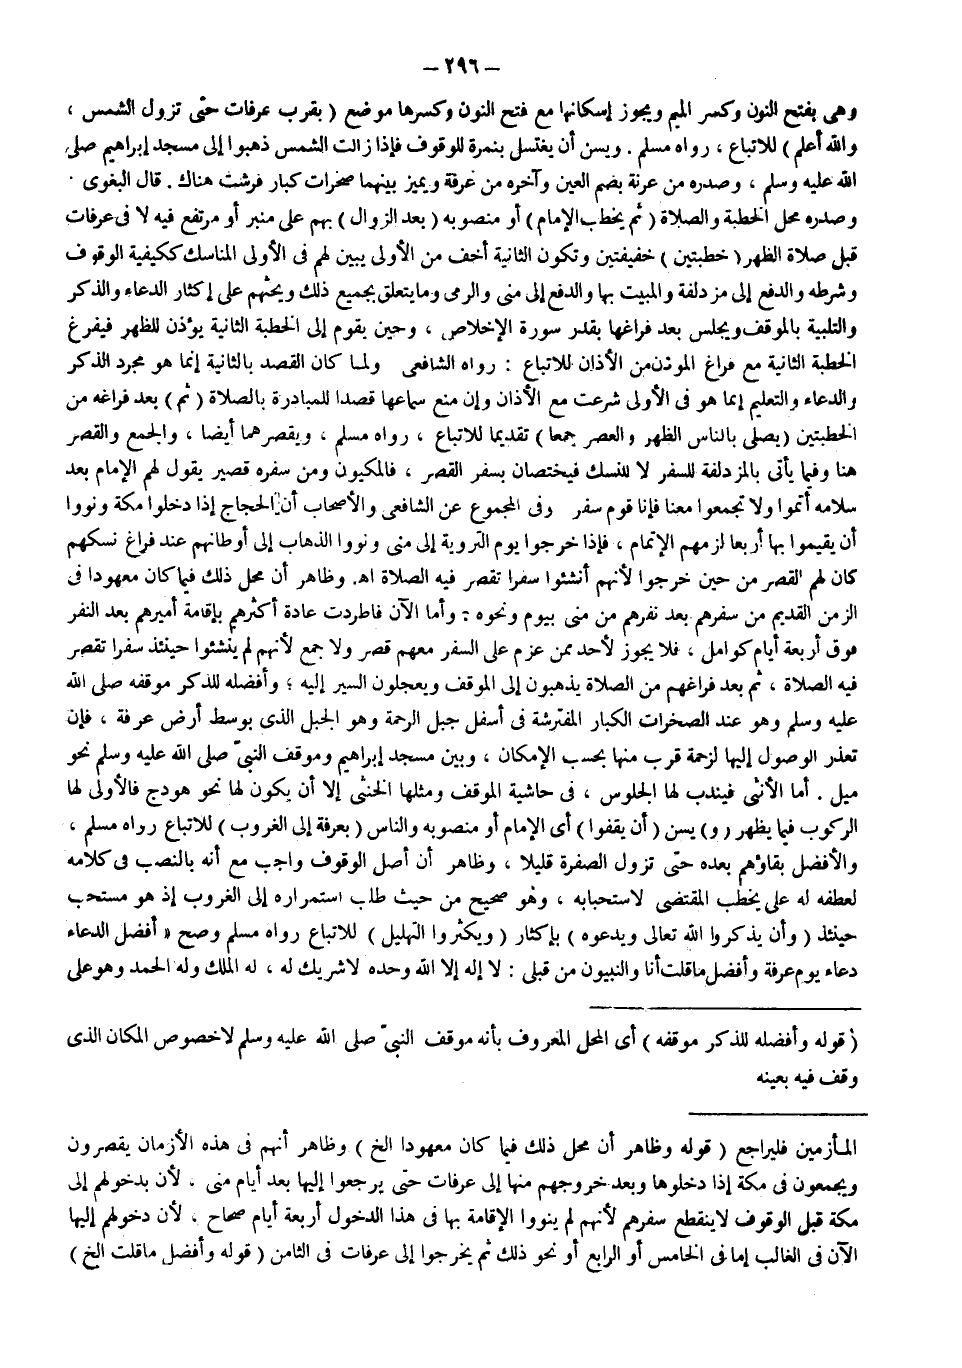 — ٢٩٦ —
وهى بفتح النون وكسر الميم ويجوز إسكانها مع فتح النون وكسرها موضع ( بقرب عرفات حتى تزول الشمس ،
والله أعلم ) للاتباع ، رواه مسلم . ويسن أن يغتسل بنمرة للوقوف فإذا زالت الشمس ذهبوا إلى مسجد إبراهيم صلى
الله عليه وسلم ، وصدره من عرنة بضم العين وآخره من عرفة ويميز بينهما صخرات كبار فرشت هناك . قال البغوى
وصدره محل الخطبة والصلاة ( ثم يخطب الإمام ) أو منصوبه ( بعد الزوال ) بهم على منبر أو مرتفع فيه لا فى عرفات
قبل صلاة الظهر ( خطبتين ) خفيفتين وتكون الثانية أخف من الأولى يبين لهم فى الأولى المناسك ككيفية الوقوف
وشرطه والدفع إلى مزدلفة والمبيت بها والدفع إلى منى والرمى وما يتعلق بجميع ذلك ويحثهم على إكثار الدعاء والذكر
والتلبية بالموقف ويجلس بعد فراغها بقدر سورة الإخلاص ، وحين يقوم إلى الخطبة الثانية يؤذن للظهر فيفرغ
الخطبة الثانية مع فراغ المؤذن من الأذان للاتباع : رواه الشافعى ولما كان القصد بالثانية إنما هو مجرد الذكر
والدعاء والتعليم إنما هو فى الأولى شرعت مع الأذان وإن منع سماعها قصدا للمبادرة بالصلاة ( ثم ) بعد فراغه من
الخطبتين ( يصلى بالناس الظهر والعصر جمعا ) تقديما للاتباع ، رواه مسلم ، ويقصرهما أيضا ، والجمع والقصر
هنا وفيما يأتى بالمزدلفة للسفر لا للنسك فيختصان بسفر القصر ، فالمكيون ومن سفره قصير يقول لهم الإمام بعد
سلامه أتموا ولا تجمعوا معنا فإنا قوم سفر وفى المجموع عن الشافعى والأصحاب أن الحجاج إذا دخلوا مكة ونووا
أن يقيموا بها أربعا لزمهم الإتمام ، فإذا خرجوا يوم التروية إلى منى ونووا الذهاب إلى أوطانهم عند فراغ نسكهم
كان لهم القصر من حين خرجوا لأنهم أنشئوا سفرا تقصر فيه الصلاة اه . وظاهر أن محل ذلك فيما كان معهودا فى
الزمن القديم من سفرهم بعد نفرهم من منى بيوم ونحوه : وأما الآن فاطردت عادة أكثرهم بإقامة أميرهم بعد النفر
فوق أربعة أيام كوامل ، فلا يجوز لأحد ممن عزم على السفر معهم قصر ولا جمع لأنهم لم ينشئوا حينئذ سفرا تقصر
فيه الصلاة ، ثم بعد فراغهم من الصلاة يذهبون إلى الموقف ويعجلون السير إليه ؛ وأفضله للذكر موقفه صلى الله
عليه وسلم وهو عند الصخرات الكبار المفترشة فى أسفل جبل الرحمة وهو الجبل الذى بوسط أرض عرفة ، فإن
تعذر الوصول إليها لزحمة قرب منها بحسب الإمكان ، وبين مسجد إبراهيم وموقف النبىّ صلى الله عليه وسلم نحو
ميل . أما الأنثى فيندب لها الجلوس ، فى حاشية الموقف ومثلها الخنثى إلا أن يكون لها نحو هودج فالأولى لها
الركوب فيما يظهر ( و ) يسن ( أن يقفوا ) أى الإمام أو منصوبه والناس ( بعرفة إلى الغروب ) للاتباع رواه مسلم ،
والأفضل بقاؤهم بعده حتى تزول الصفرة قليلا ، وظاهر أن أصل الوقوف واجب مع أنه بالنصب فى كلامه
لعطفه له على يخطب المقتضى لاستحبابه ، وهو صحيح من حيث طلب استمراره إلى الغروب إذ هو مستحب
حينئذ ( وأن يذكروا الله تعالى ويدعوه ) بإكثار ( ويكثروا التهليل ) للاتباع رواه مسلم وصح « أفضل الدعاء
دعاء يوم عرفة وأفضل ما قلت أنا والنبيون من قبلى : لا إله إلا الله وحده لا شريك له ، له الملك وله الحمد وهو على
( قوله وأفضله للذكر موقفه ) أى المحل المعروف بأنه موقف النبىّ صلى الله عليه وسلم لا خصوص المكان الذى
وقف فيه بعينه
المأزمين فليراجع ( قوله وظاهر أن محل ذلك فيما كان معهودا الخ ) وظاهر أنهم فى هذه الأزمان يقصرون
ويجمعون فى مكة إذا دخلوها وبعد خروجهم منها إلى عرفات حتى يرجعوا إليها بعد أيام منى ، لأن بدخولهم إلى
مكة قبل الوقوف لا ينقطع سفرهم لأنهم لم ينووا الإقامة بها فى هذا الدخول أربعة أيام صحاح ، لأن دخولهم إليها
الآن فى الغالب إما فى الخامس أو الرابع أو نحو ذلك ثم يخرجوا إلى عرفات فى الثامن ( قوله وأفضل ما قلت الخ )